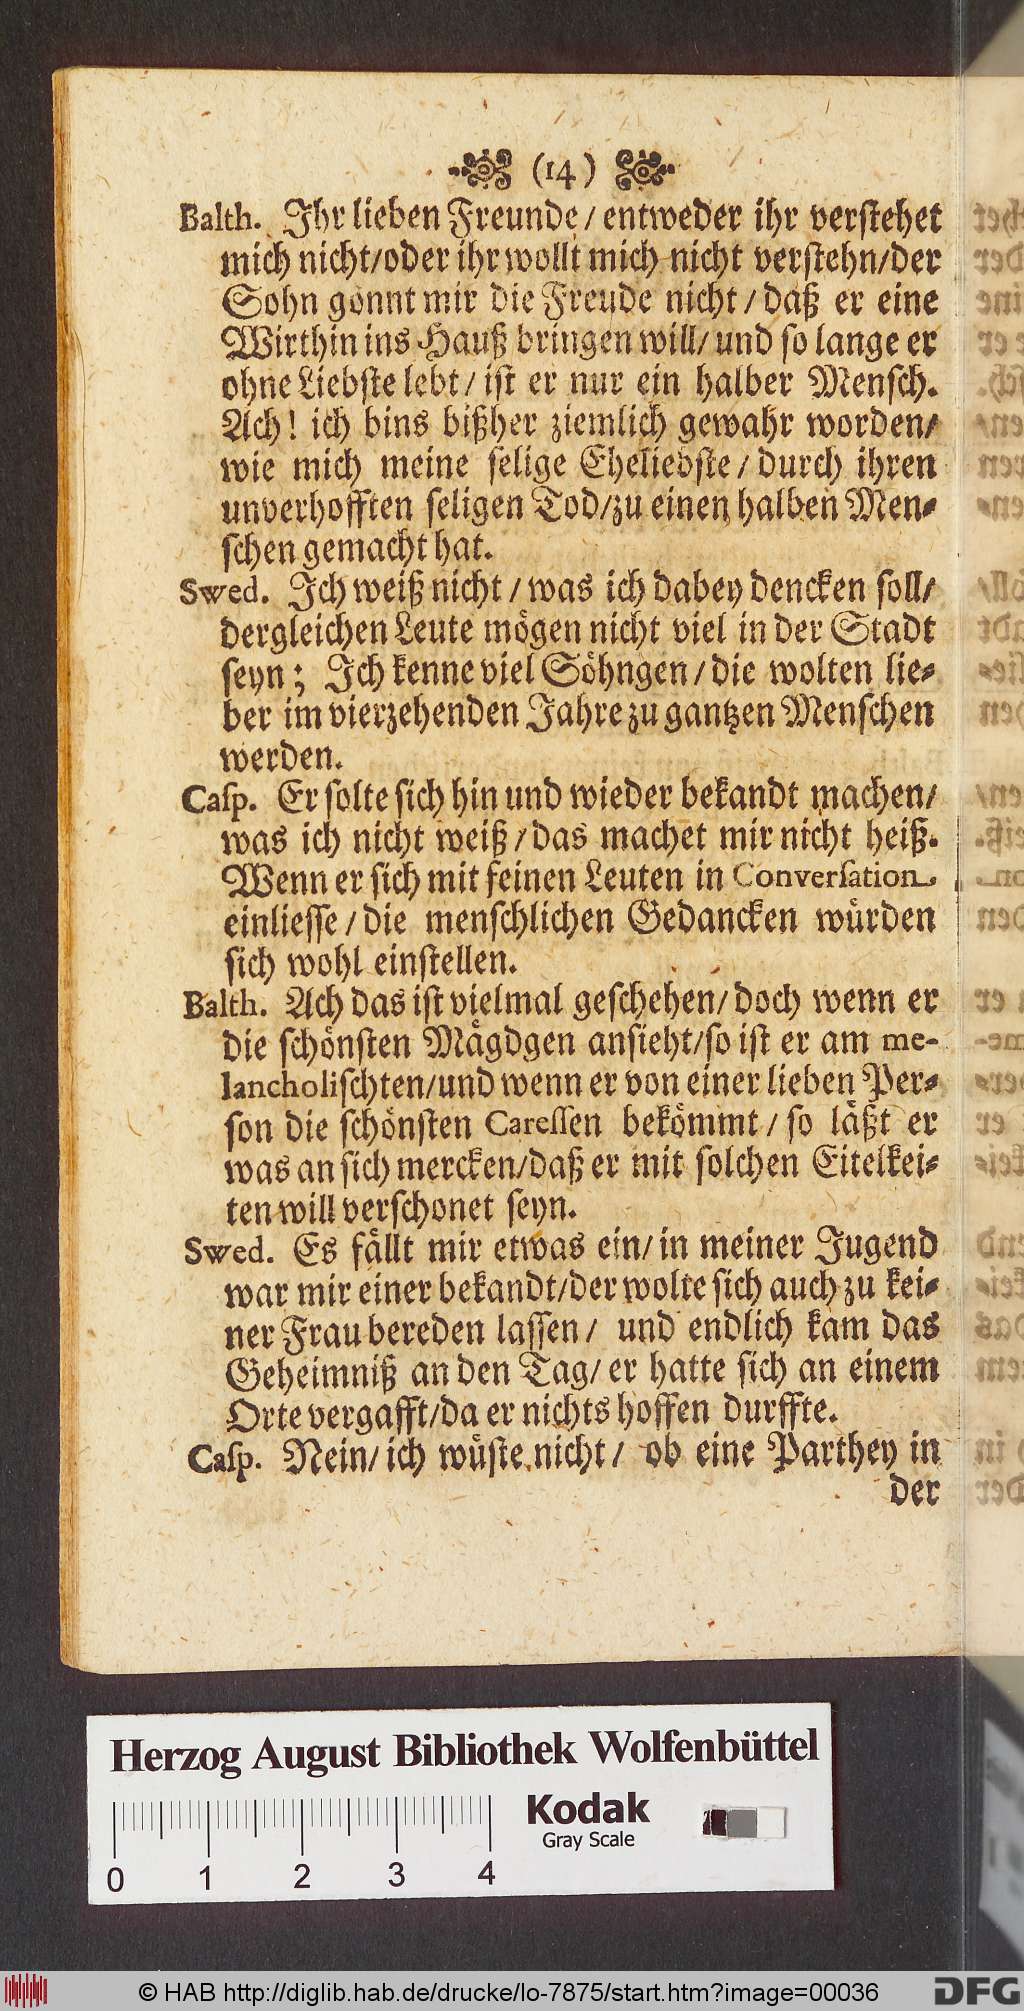 (14)
Balth. Ihr lieben Freunde / entweder ihr verstehet
mich nicht/oder ihr wollt mich nicht verstehn/der
Sohn gonnt mir die Freude nicht / daß er eine
Wirthin ins Hauß bringen will/ und so lange er
ohne Liebste lebt / ist er nur ein halber Mensch.
Ach! ich bins bißher ziemlich gewahr worden/
wie mich meine selige Eheliebste / durch ihren
unverhofften seligen Tod/zu einen halben Men-
schen gemacht hat.
Swed. Ich weiß nicht / was ich dabey dencken soll/
dergleichen Leute mögen nicht viel in der Stadt
seyn; Ich kenne viel Söhngen / die wolten lie-
ber im vierzehenden Jahre zu gantzen Menschen
werden.
Casp. Er solte sich hin und wieder bekandt machen/
was ich nicht weiß / das machet mir nicht heiß.
Wenn er sich mit feinen Leuten in Conversation
einliesse / die menschlichen Gedancken würden
sich wohl einstellen.
Balth. Ach das ist vielmal geschehen/ doch wenn er
die schönsten Mägdgen ansieht/so ist er am me-
lancholischten/und wenn er von einer lieben Per-
son die schönsten Caressen bekömmt / so läßt er
was an sich mercken/daß er mit solchen Eitelkei-
ten will verschonet seyn.
Swed. Es fällt mir etwas ein/ in meiner Jugend
war mir einer bekandt/der wolte sich auch zu kei-
ner Frau bereden lassen / und endlich kam das
Geheimniß an den Tag/ er hatte sich an einem
Orte vergafft/da er nichts hoffen durffte.
Casp. Nein/ ich wüste nicht / ob eine Parthey in
der
Herzog August Bibliothek Wolfenbüttel
Kodak
Gray Scale
0 1 2 3 4
© HAB http://diglib.hab.de/drucke/lo-7875/start.htm?image=00036
DFG